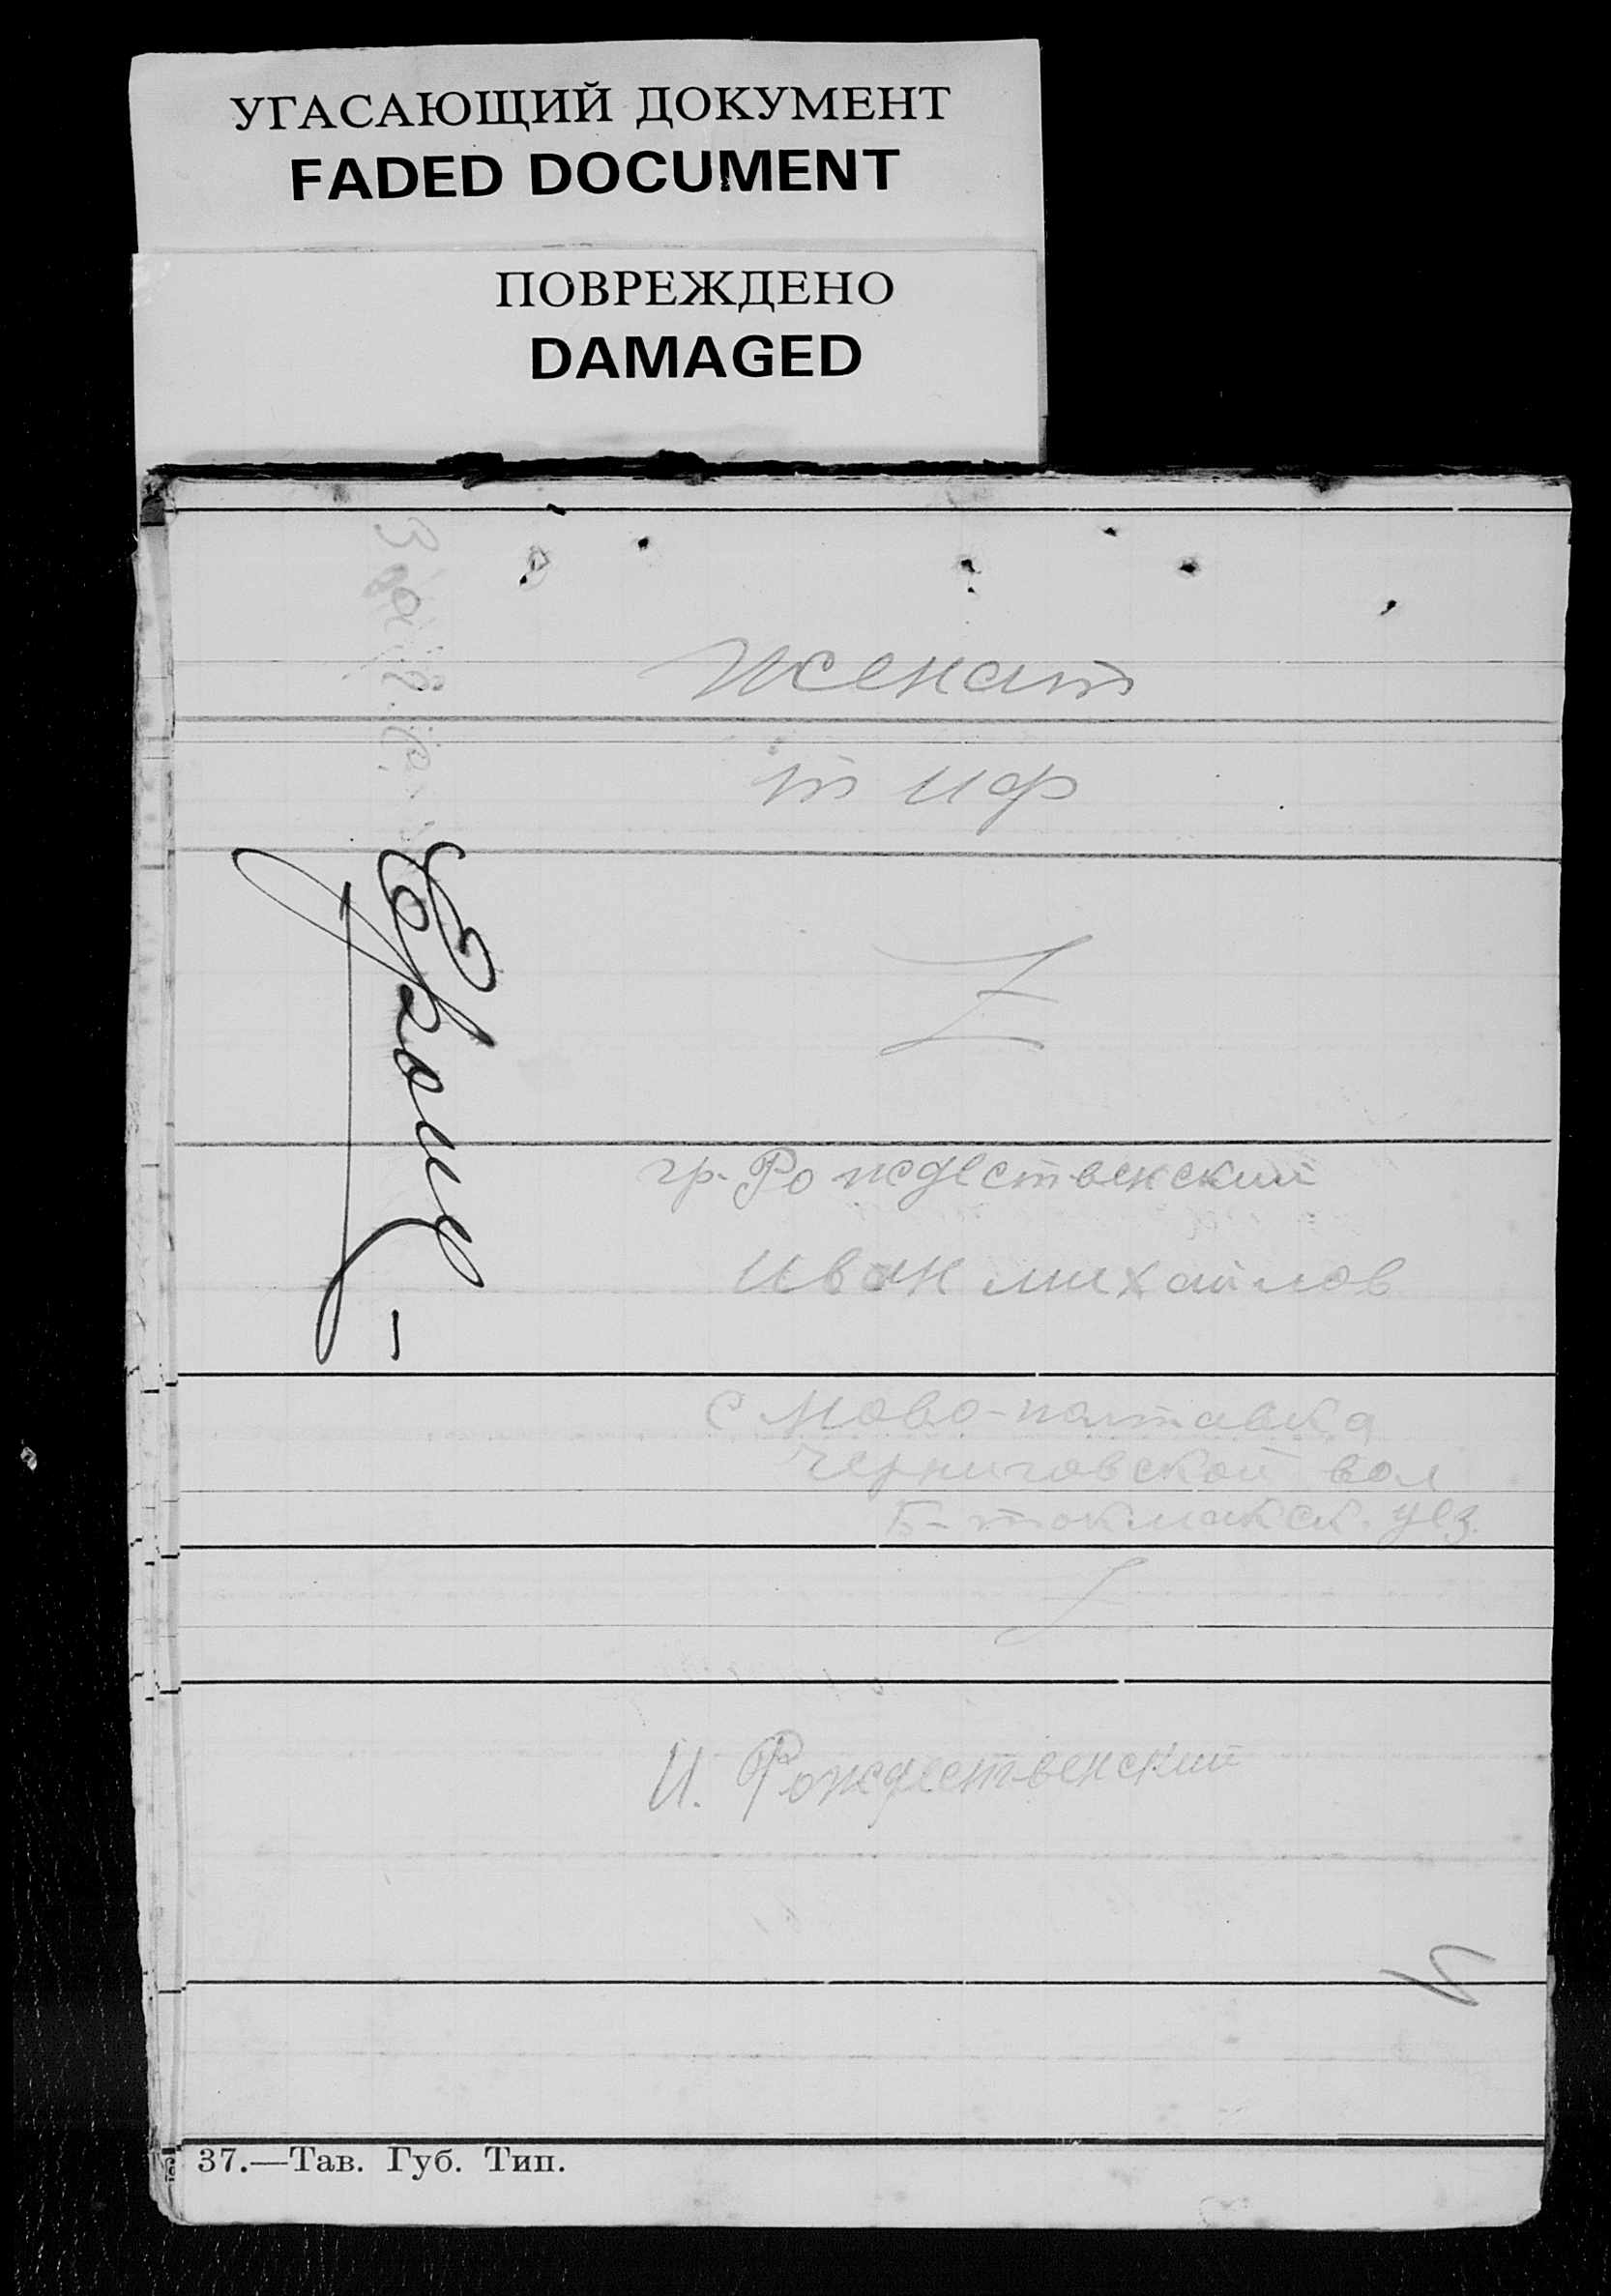 УГАСАЮЩИЙ ДОКУМЕНТ
FADED DOCUMENT
ПОВРЕЖДЕНО
DAMAGED
женат
тиф
Z
гр. Рождественский
Иван михайлов
с Ново-полтавка
Черниговской вол
Б-токмакск. уез.
Z
И. Рождественский
37.—Тав. Губ. Тип.